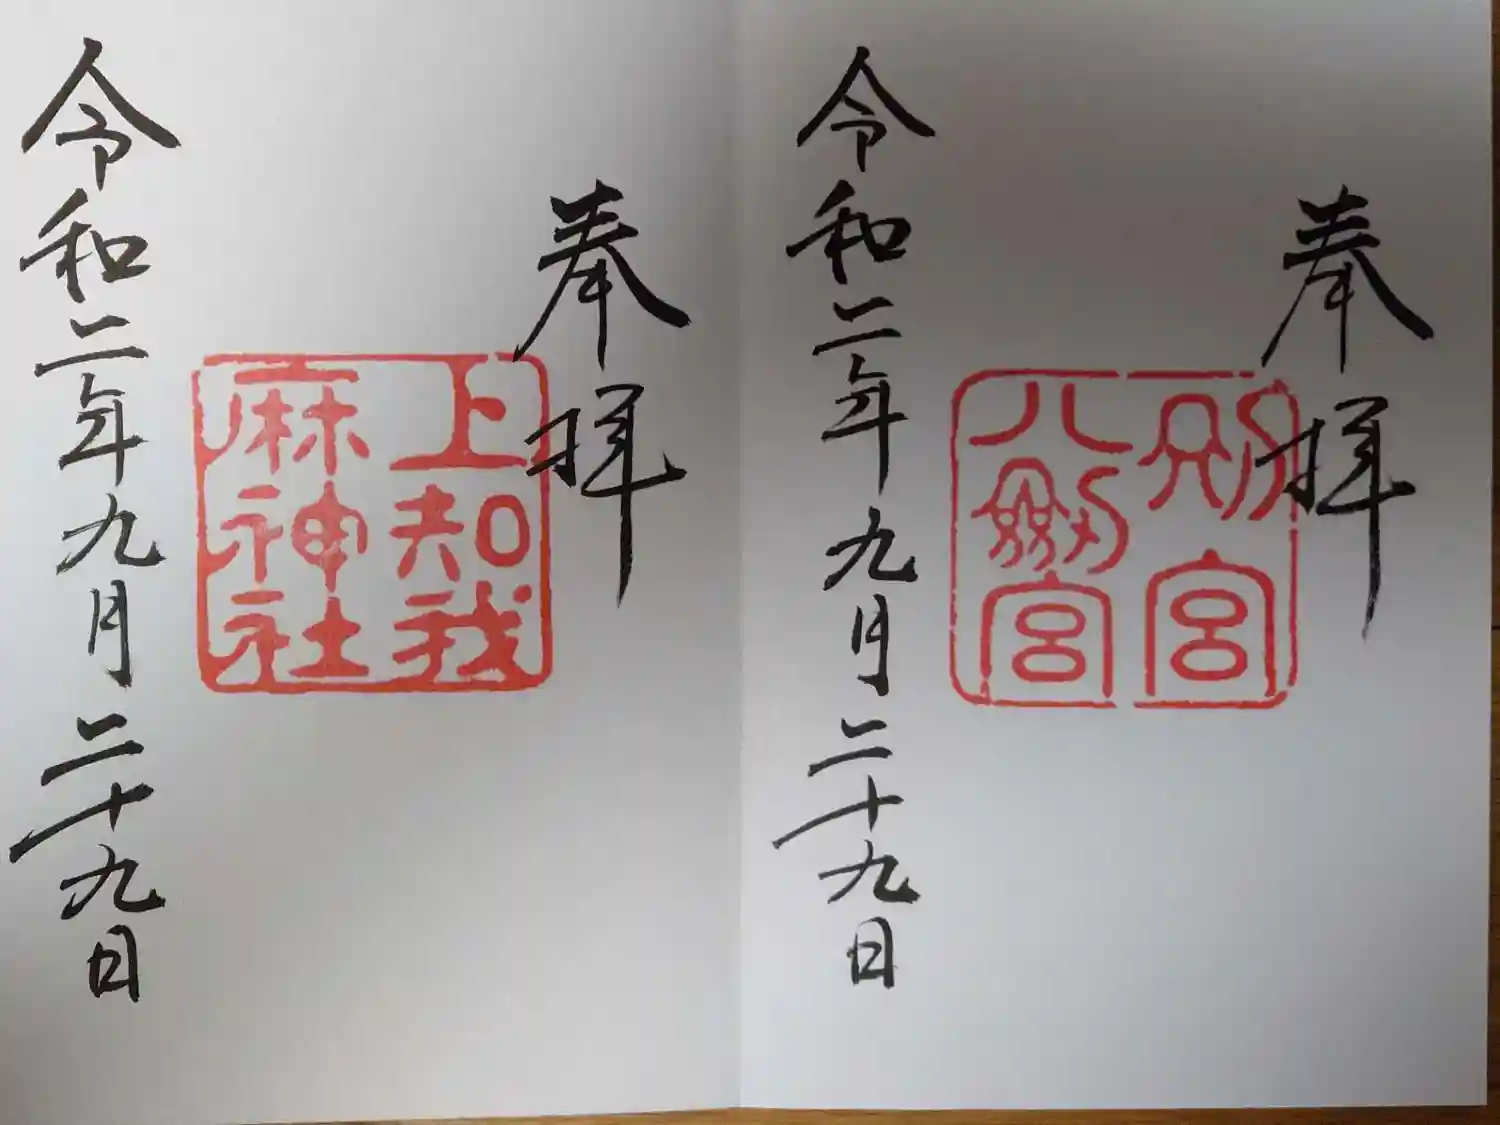 奉拝
別宮
八劍宮
令和二年九月二十九日
奉拝
上知我
麻神社
令和二年九月二十九日